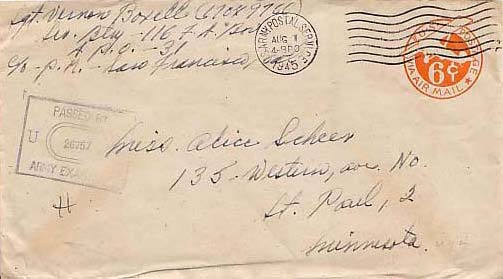 Sgt. Vernon Boxell
Ser. Btry - 116 F.A. Bn
A.P.O. - 31
c/o - P.M. - San Francisco,
U.S. ARMY POSTAL SERVICE
AUG 1
4-30 PM
1945
U.S. POSTAGE
6¢
VIA AIR MAIL
PASSED BY
U
26757
ARMY EXA
Miss. Alice Scheer
135 - Western, ave. No.
St. Paul, 2
Minnesota.